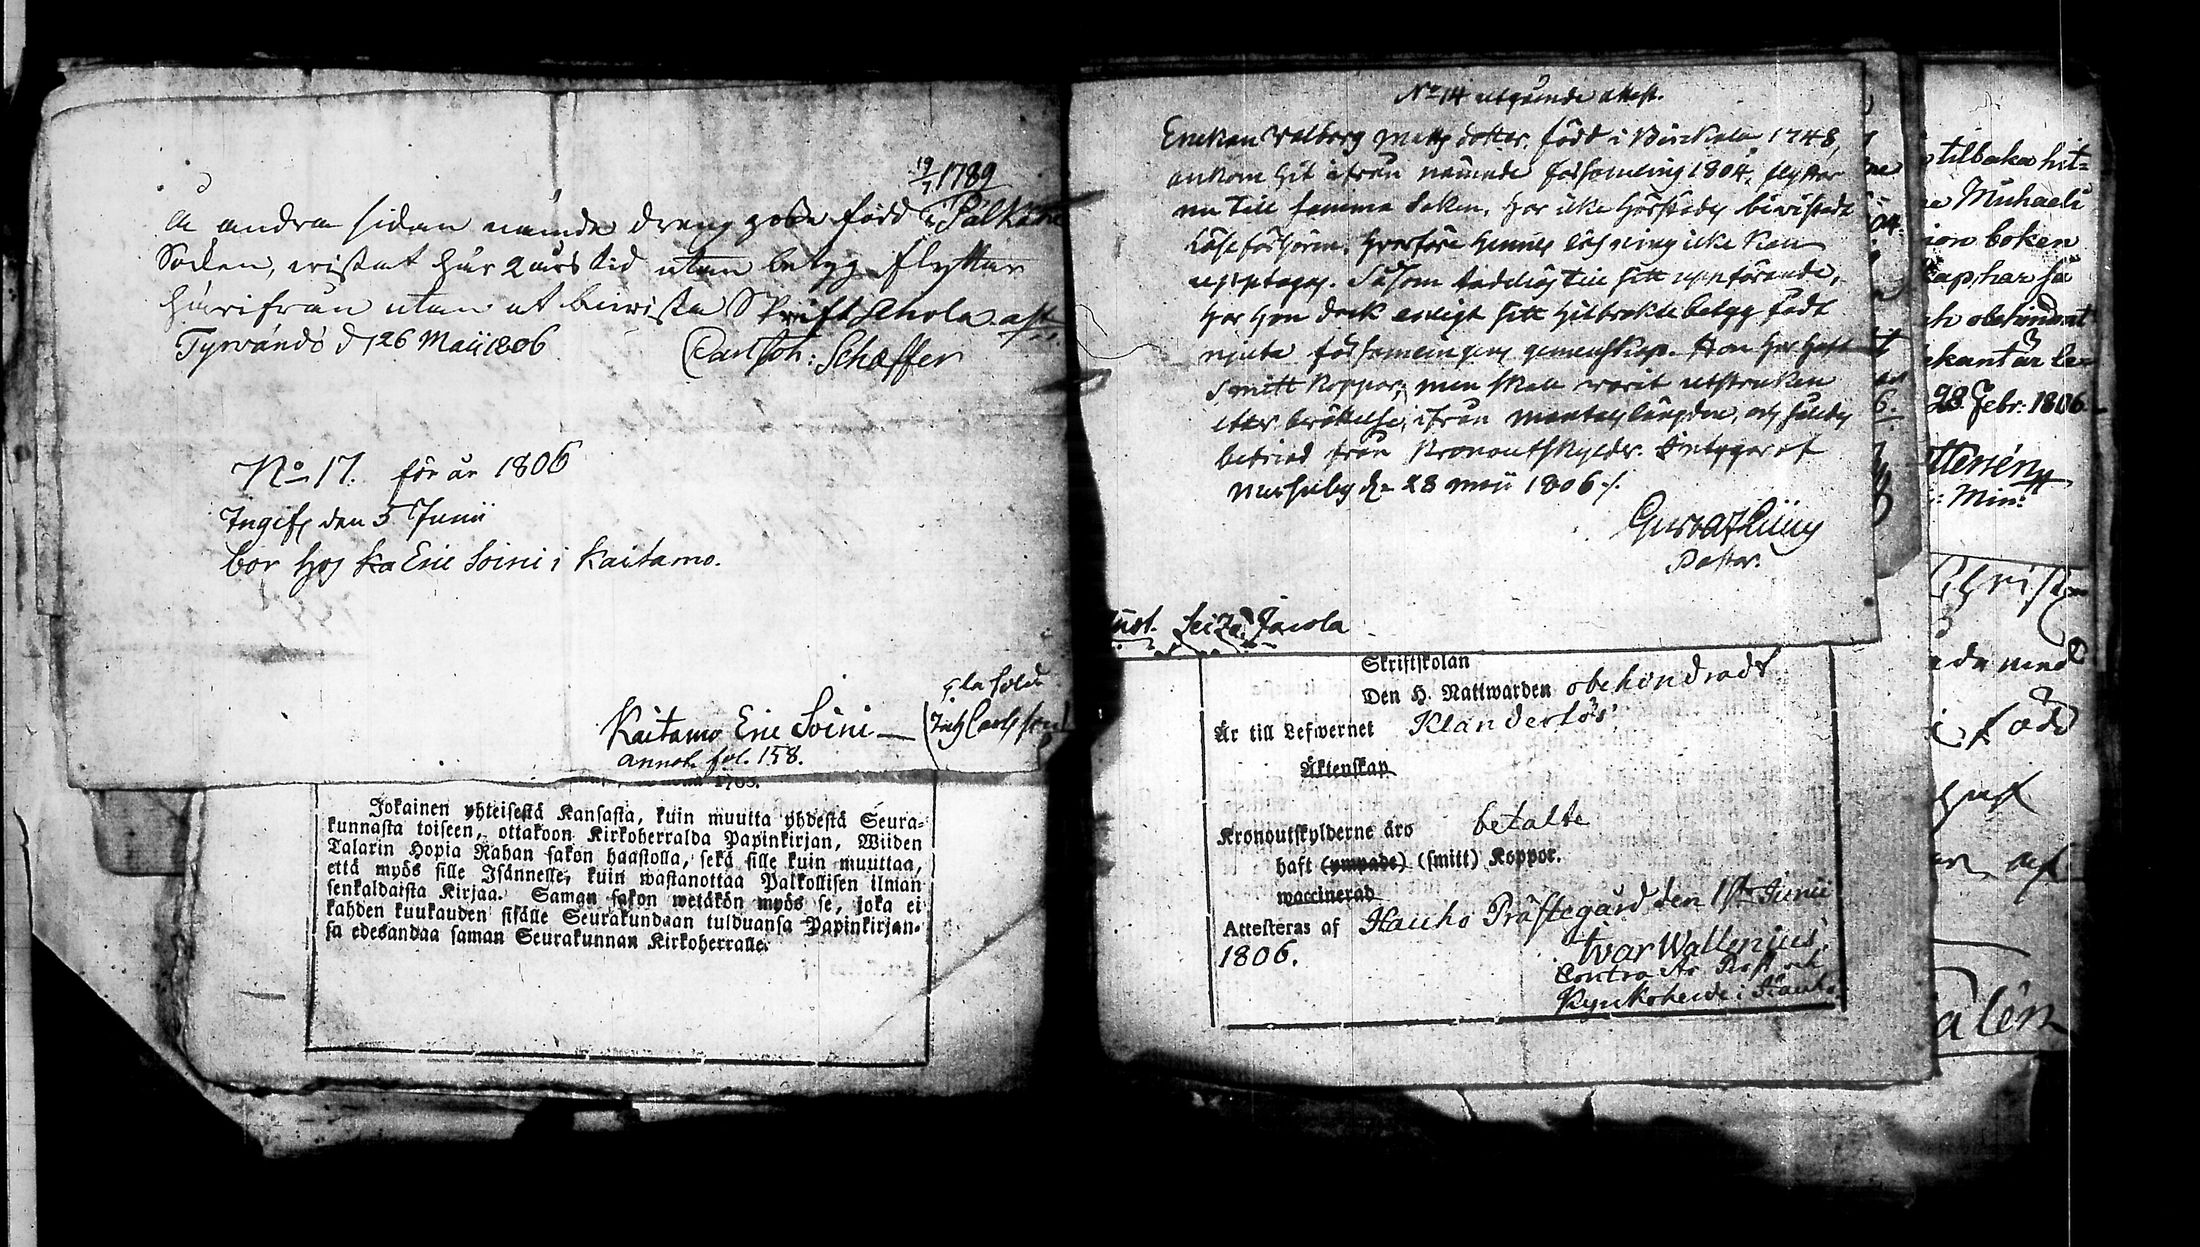 19/7 1789
A andra sidan nämde dräng född i Pälkäne
Socken, wistat här 2 års tid utan betyg flyttar
härifrån utan at bewista Skriftschola
Tyrwändö d 26 Maii 1806 Carl Joh: Schæffer
No 17. för år 1806
Ingifs den 5 Junii
bor hos Eric Soini i Kaitamo.
Kaitamo Eric Soini —
annot. fol. 158.
1763.
Jokainen yhteisestä Kansasta, kuin muutta yhdestä Seura=
kunnasta toiseen, ottakoon Kirkoherralda Papinkirjan, Wiiden
Talarin Hopia Rahan sakon haastolla, sekä sille kuin muuttaa,
että myös sille Isännelle, kuin wastanottaa Palkollisen ilman
senkaldaista Kirjaa. Saman sakon wetäkön myös se, joka ei
kahden kuukauden sisälle Seurakundaan tulduansa Papinkirjan=
sa edesandaa saman Seurakunnan Kirkoherralle.
No 14 utgående attest.
Enckan Walborg Matts dotter född i Birckala 1748,
ankom hit ifrån nämnde församling 1804. flyttar
nu till samma Soken. har icke härstädes biwistadt
Läseförhören, hwarföre hennes läsning icke kan
upptagas. Såsom tadellös till sitt uppförande,
har hon dock enligt sitt hitbrakte betyg fådt
njuta församlingens gemenskap. Hon har haft
Smitt koppor; men skall warit utstruken
ifrån mantals längden, och således
befriad från Kronoutskylder. Intygar af
Messuby d. 28 Maii 1806 ./.
Pastor.
Seize Jacola
Skriftskolan
Den H. Nattwarden obehindradt
Är till Lefwernet Klanderlös
Äktenskap
Kronoutskylderne äro betalte
haft (ympade) (smitt) Koppor.
waccinerad
Attesteras af Hauho Prästegård den 1ste Junii
1806.
Ivar Wallenius,
Contracts Prost och
Kyrckoherde i Hauho.
tilbaka hit=
Michaeli
boken
kap, har så
obehindrat
bekant är le=
28 Febr: 1806
Min:
född